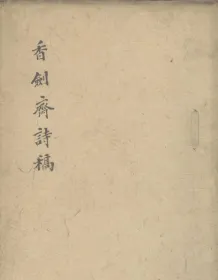 香劍齋詩稿